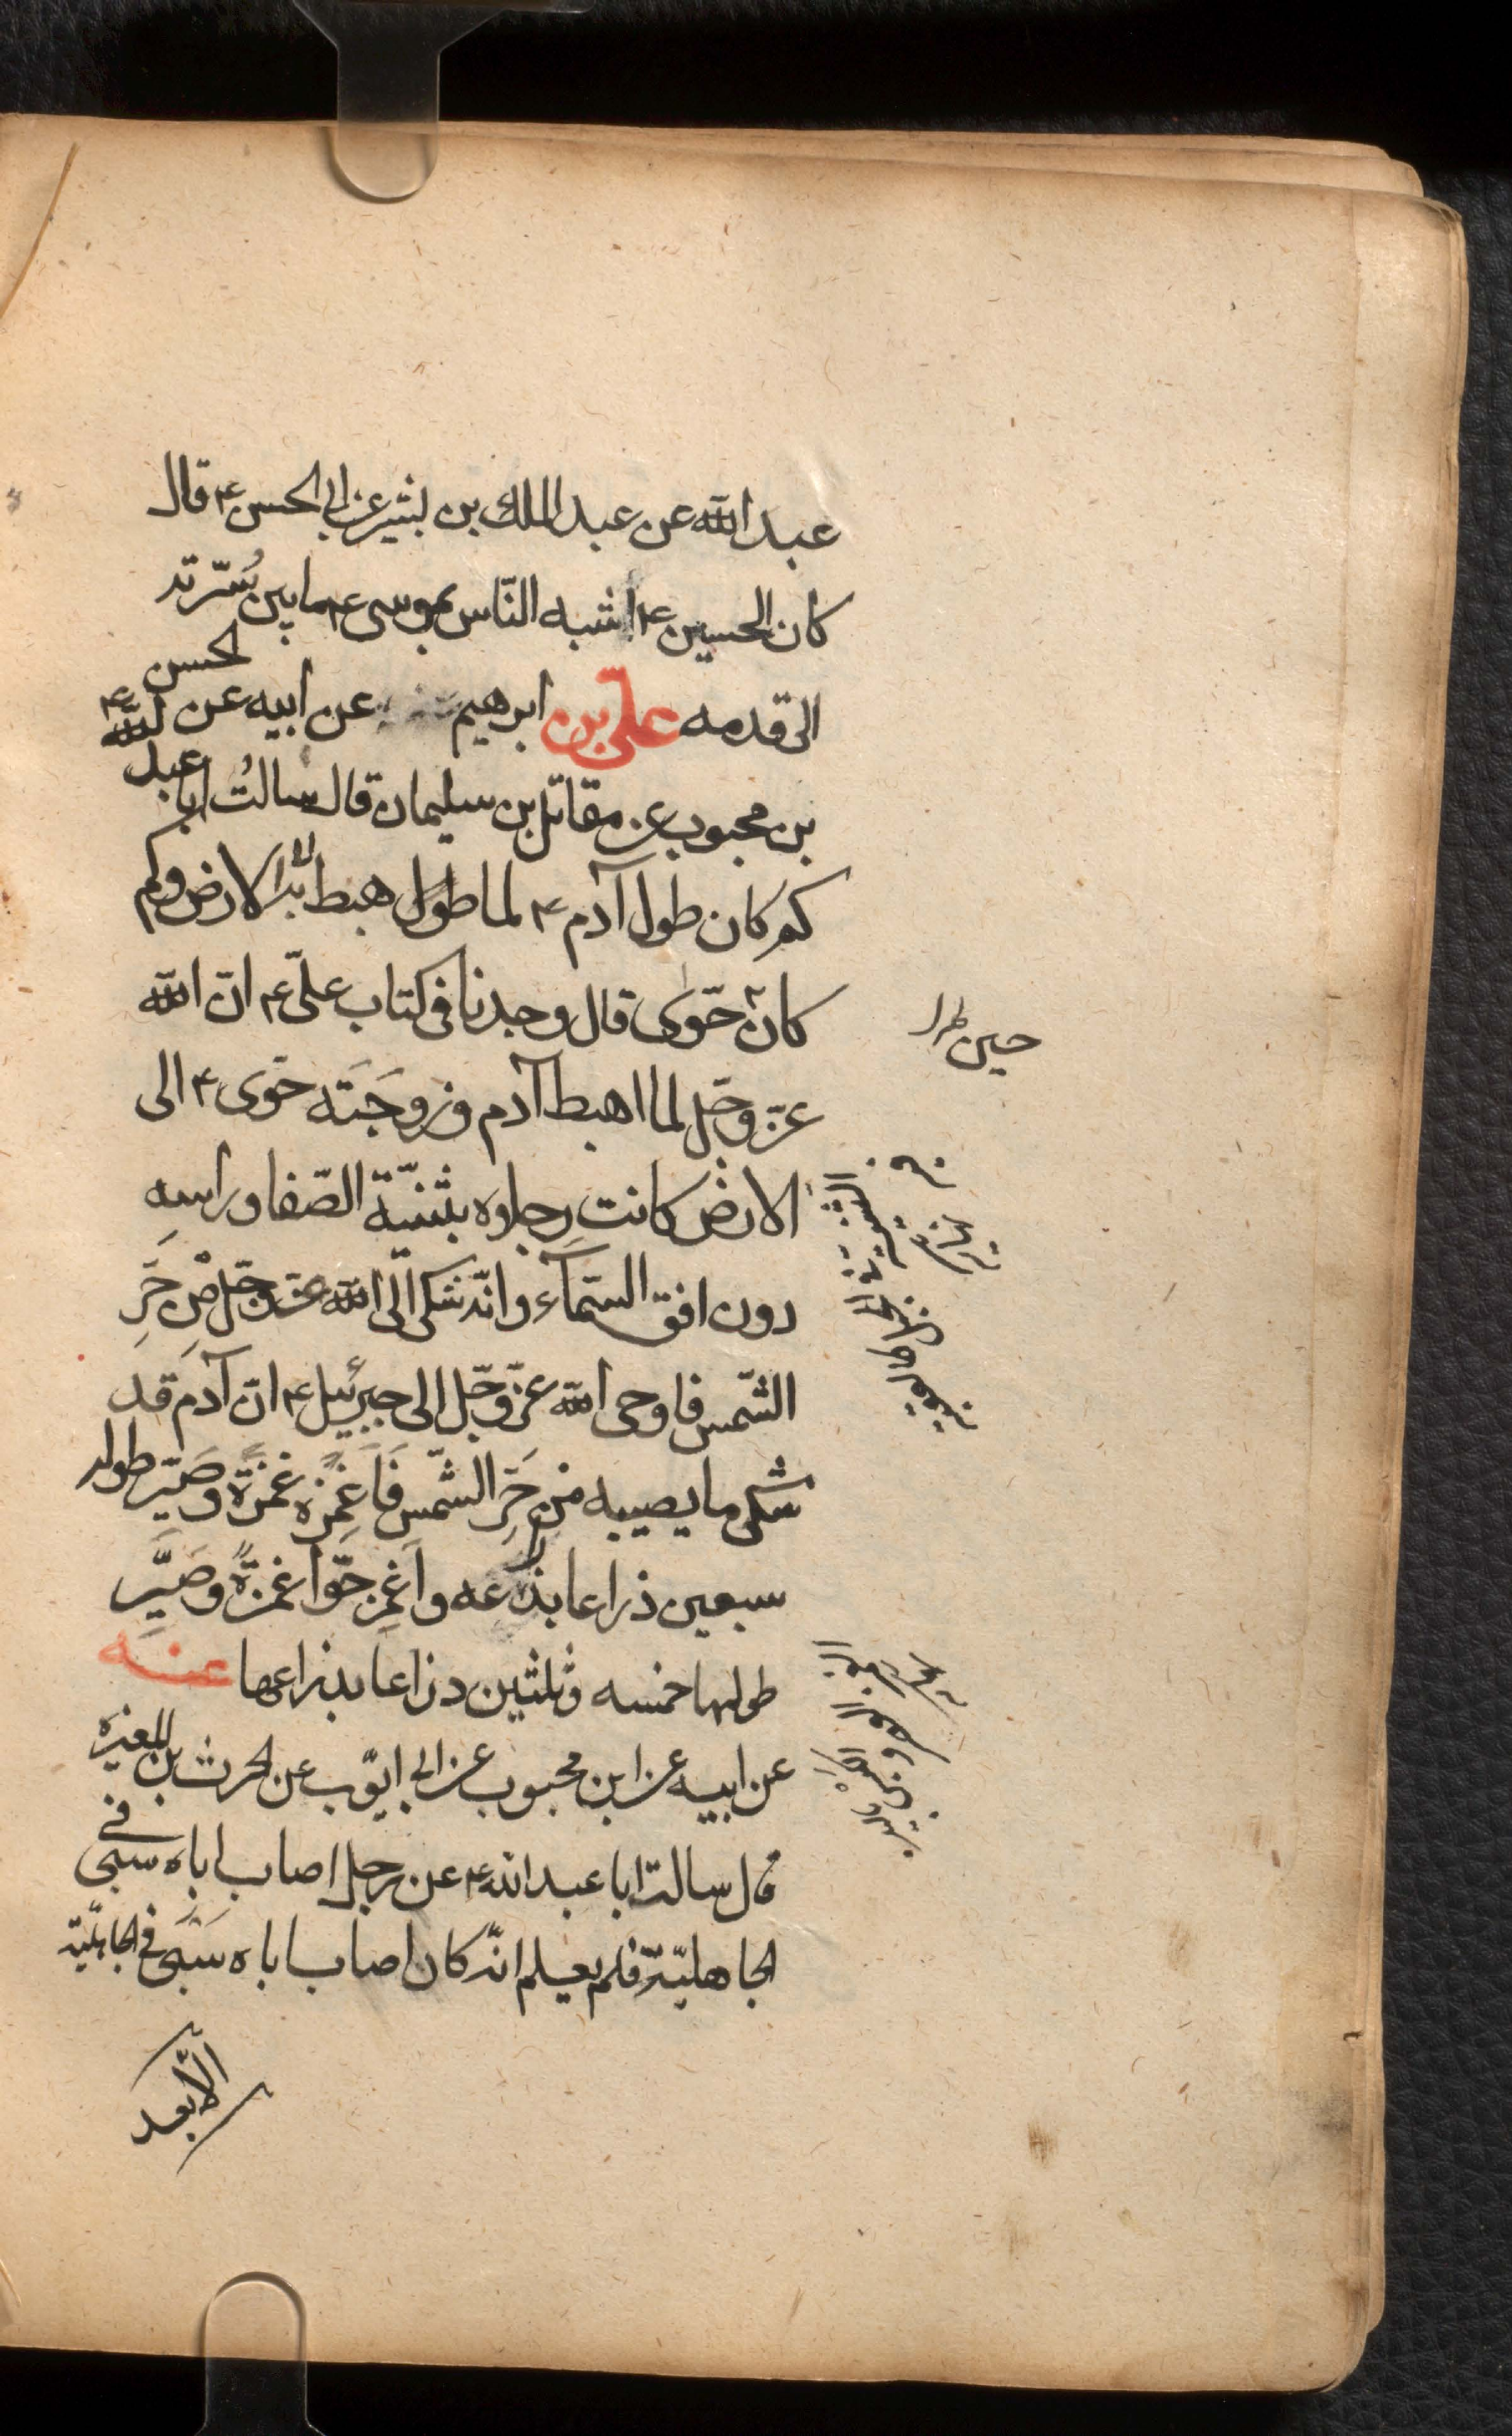 عبد الله عن عبد الملك بن بشير عن ابي الحسن ع قال
كان الحسين ع اشبه الناس بموسى ع ما بين سُرّته
الى قدمه علىّ بن ابرهيم عن ابيه عن الحسن
بن محبوب عن مقاتل بن سليمان قال سالتُ ابا عبد الله ع
كم كان طول آدم ع لما طول هبط به الى الارض وكم
كان حوّى قال وجدنا فى كتاب علىّ ع انّ الله
عزّ وجّل لما اهبط آدم وزوجَتَه حوّى ع الى
الارض كانت رِجلوه بثنيّة الصّفا وراسهِ
دون افق السّمآء وانّه شكى الى الله عزّ وجّل مِن حَرِّ
الشّمس فاوحى الله عزّ وجّل الى جبرئيل ع انّ آدم قد
شكى ما يصيبه من حَرِّ الشّمس فَاَغمِزه غمزةً وصَيّر طوله
سبعين ذراعا بذراعه واَغمِز حوّا غمزةً وصَيَّرِ
طولها خمسه وثلثين دزاعا بذراعها عنه
عن ابيه عن ابن محبوب عن ابى ايّوب عن الحرث بن المغيره
قال سالت ابا عبد الله ع عن رجل اصاب اباه سبى فى
الجاهليّة فلم يعلم انّه كان اصاب اباه سَبَى فى الجاهليّة
الّا بعد
حين